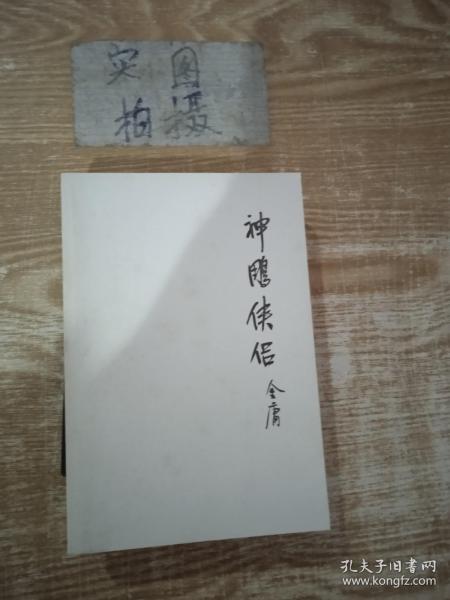 实图
拍摄
神雕侠侣
金庸
孔夫子旧书网
www.kongfz.com